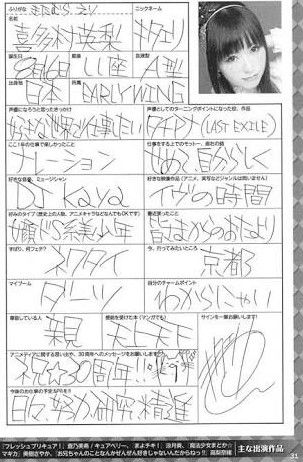 ふりがな きたむら えり ニックネーム
名前
喜多村英梨 キタエリ
誕生日 星座 血液型
8月16日 しし座 A型
出身 所属
日本 EARLY WING
声優になろうと思ったきっかけ
好きな世界で仕事したい
声優としてのターニングポイントになった役、作品
タチアナ (LAST EXILE)
ここ1年の仕事で楽しかったこと
ナレーション
仕事をする上でのモットー、座右の銘
好きな音楽、ミュージシャン
DJ Kaya
好きな映像作品(アニメ、実写などジャンルは問いません)
イヴの時間
好みのタイプ(歴史上の人物、アニメキャラなどなんでもOKです)
女顔ドS系美少年
最近笑ったこと
ずばり、何フェチ?
ネクタイ
今、行ってみたいところ
京都
マイブーム
ダーツ
自分のチャームポイント
わからにゃい
尊敬している人
親
感銘を受けた本(マンガでも)
天上天下
サインを一筆お願いします!
アニメディアに関する思い出や、30周年へのメッセージをお願いします
祝☆30周年!!
今後のお仕事の予定をPR!!
日々、努力研究精進
『フレッシュプリキュア!』蒼乃美希/キュアベリー、『まよチキ!』涼月奏、『魔法少女まどか☆
マギカ』美樹さやか、『お兄ちゃんのことなんかぜんぜん好きじゃないんだからねっ!!』高梨奈緒
主な出演作品